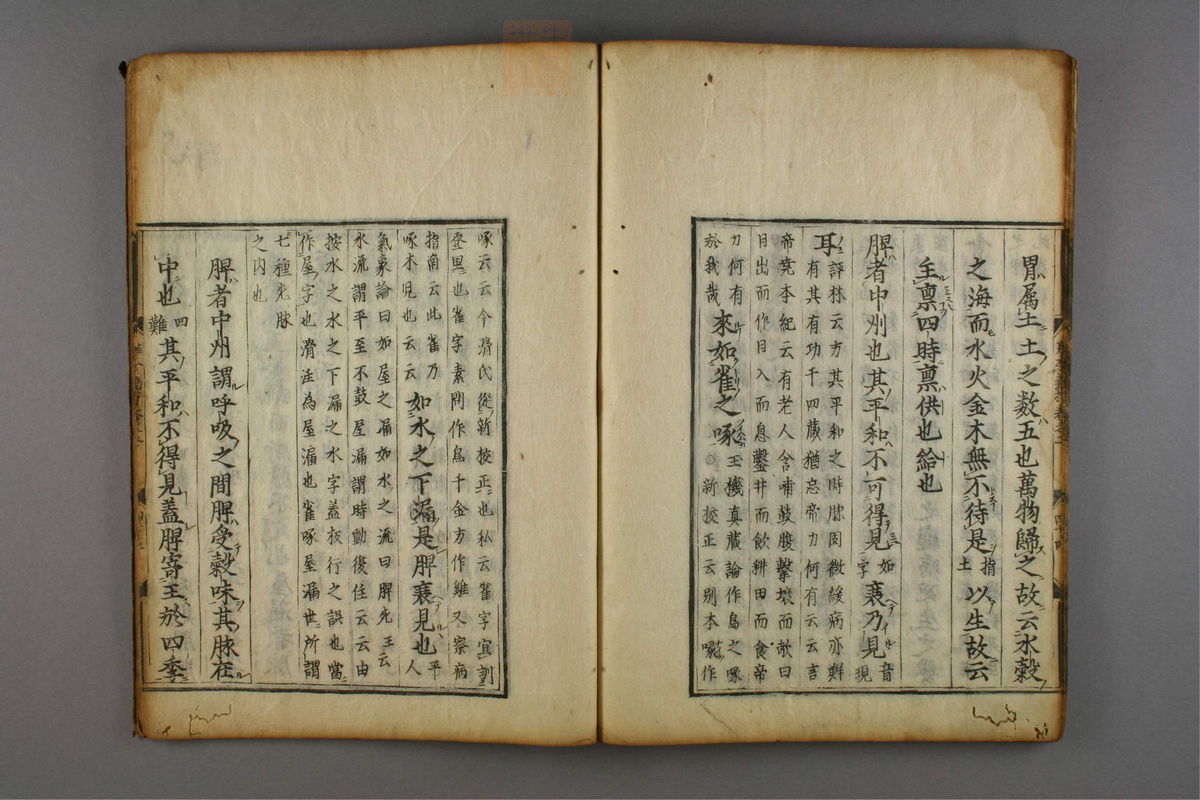 胃属土土之数五也萬物歸之故云水穀
之海而水火金木無不待是指土以生故云
主稟四時稟供也給也
脾者中州也其平和不可得見如字衰乃見音現
耳評林云方其平和之時脉固微緩病亦鮮
有其有功千四藏猶忘帝力何有云云言
帝尭本紀云有老人含哺鼓腹擊壤而歌曰
日出而作日入而息鑿井而飲耕田而食帝
力何有
於我哉來如雀之啄玉機真蔵論作鳥之啄
新校正云别本喙作
啄云云今滑氏從新校正也私云雀字宜訓
登里也雀字素問作鳥千金方作雞又察病
指南云此雀乃
啄木児也云云如水之下漏是脾衰見也平人
氣象論曰如屋之漏如水之流曰脾死王云
水流謂平至不鼓屋漏謂時動復住云云由
按水之水之下漏之水字蓋板行之誤也當
作屋字也滑注為屋漏也雀啄屋漏世所謂
七種死脉
之内也
脾者中州謂呼吸之間脾受穀味其脉在
中也四難其平和不得見蓋脾寄王於四季